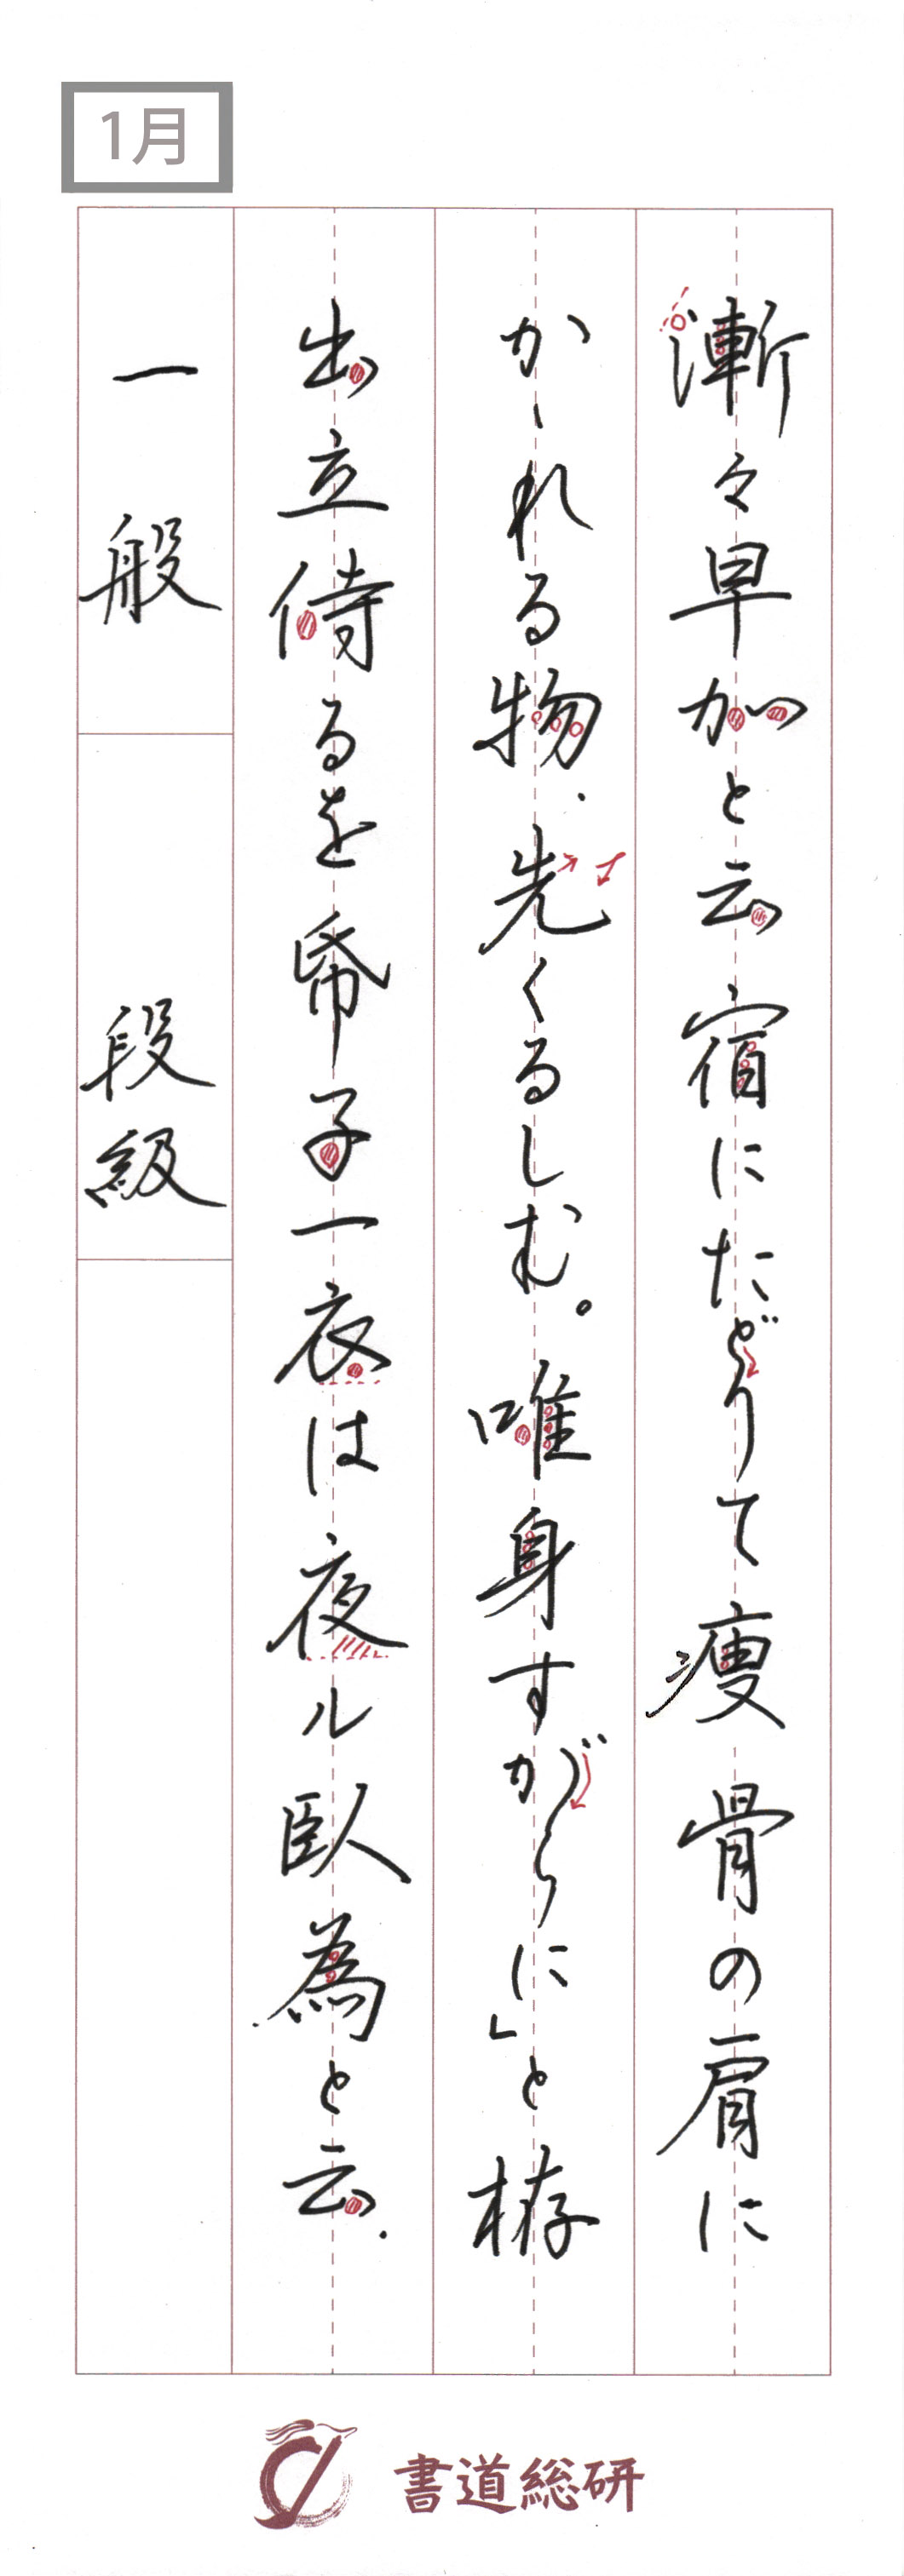 1月
漸々早加と云宿にたどりて痩骨の肩に
かゝれる物.先くるしむ。唯身すがらに」と栫
出立侍るを帋子一衣は夜ル臥為と云.
一般
段級
書道総研